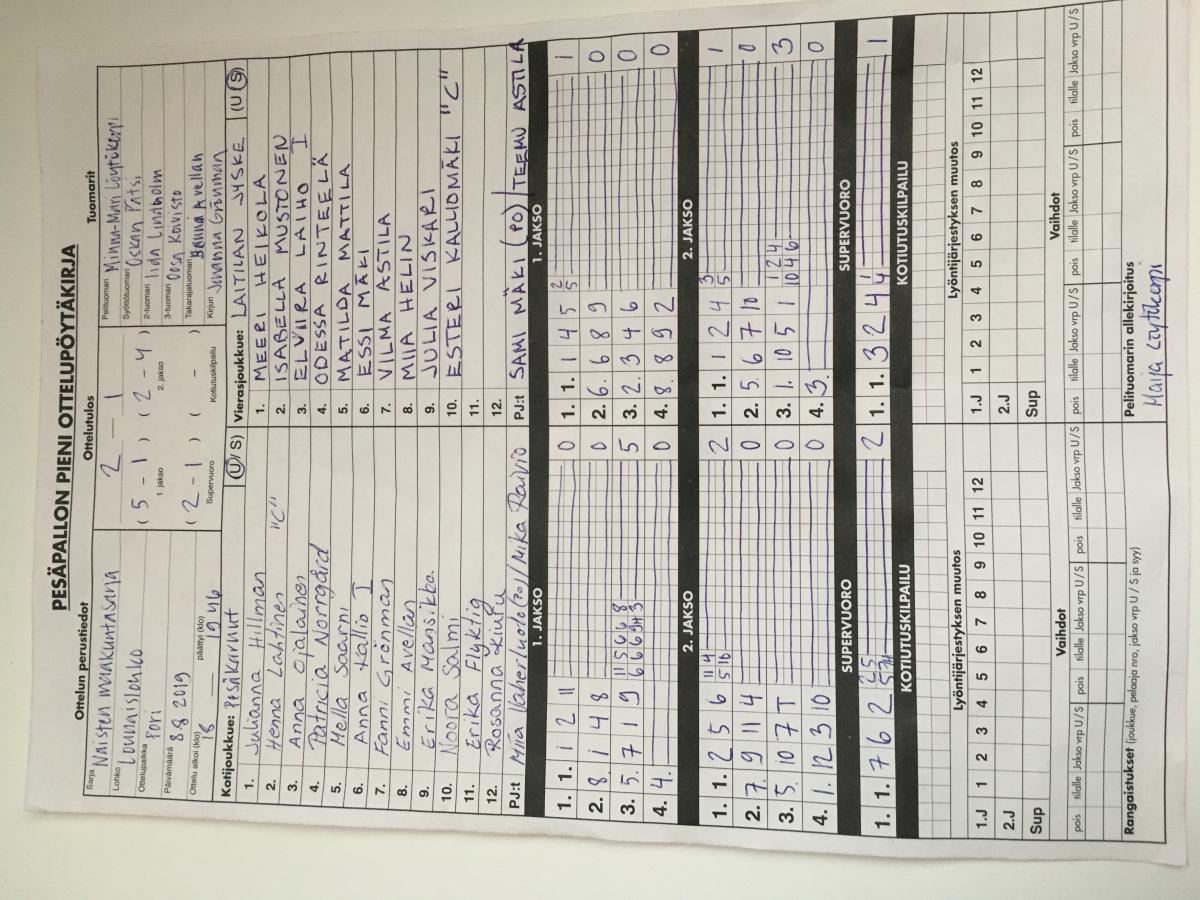 PESÄPALLON PIENI OTTELUPÖYTÄKIRJA
Ottelun perustiedot
Sarja Naisten maakuntasarja
Lohko Lounnislohko
Ottelupaikka Pori
Päivämäärä 8 8 2019
Ottelu alkoi (klo) 18 päättyi (klo) 1946
Ottelutulos
2 – 1
( 5 – 1 ) ( 2 – 4 )
1. jakso 2. jakso
( 2 – 1 ) ( – )
Supervuoro Kotiutuskilpailu
Tuomarit
Pelituomari Minna-Mari Löytökorpi
Syöttötuomari Oskari Pätsi
2-tuomari Iida Lindholm
3-tuomari Oosa Koivisto
Takarajatuomari Avellan
Kirjuri Johanna Grönman
Kotijoukkue: Pesäkarhut (U/S)
1. Julianna Hillman
2. Henna Lahtinen "C"
3. Anna Ojalainen
4. Patricia Norrgård
5. Mella Saarni
6. Anna Kallio I
7. Fanni Grönman
8. Emmi Avellan
9. Erika Mansikka
10. Noora Salmi
11. Erika Flyktig
12. Rosanna Kiuru
PJ:t Miia Vaherluoto (PO) / Mika Raivio
Vierasjoukkue: LAITILAN JYSKE (U/S)
1. MEERI HEIKOLA
2. ISABELLA MUSTONEN
3. ELVIIRA LAIHO I
4. ODESSA RINTEELÄ
5. MATILDA MATTILA
6. ESSI MÄKI
7. VILMA ASTILA
8. MIIA HELIN
9. JULIA VISKARI
10. ESTERI KALLIOMÄKI "C"
11.
12.
PJ:t SAMI MÄKI (PO) / TEEMU ASTILA
1. JAKSO
1. 1. 1 2 11 0
2. 8. 1 4 8 0
3. 5. 7 1 9 5
4. 4. 0
2. JAKSO
1. 1. 2 5 6 2
2. 7. 9 11 4 0
3. 5. 10 7 T 0
4. 1. 12 3 10 0
SUPERVUORO
1. 1. 7 6 2 2
KOTIUTUSKILPAILU
1. JAKSO
1. 1. 1 4 5 2 5 1
2. 6. 6 8 9 0
3. 2. 3 4 6 0
4. 8. 8 9 2 0
2. JAKSO
1. 1. 1 2 4 3 5 1
2. 5. 6 7 10 0
3. 1. 10 5 1 3
4. 3. 0
SUPERVUORO
1. 1. 3 2 4 1 4 1
KOTIUTUSKILPAILU
Lyöntijärjestyksen muutos
1.J 1 2 3 4 5 6 7 8 9 10 11 12
2.J
Sup
Vaihdot
pois tilalle Jakso vrp U/S pois tilalle Jakso vrp U/S pois tilalle Jakso vrp U/S
Lyöntijärjestyksen muutos
1.J 1 2 3 4 5 6 7 8 9 10 11 12
2.J
Sup
Vaihdot
pois tilalle Jakso vrp U/S pois tilalle Jakso vrp U/S pois tilalle Jakso vrp U/S
Rangaistukset (joukkue, pelaaja nro, jakso vrp U / S ja syy)
Pelituomarin allekirjoitus
Maija Löytökorpi